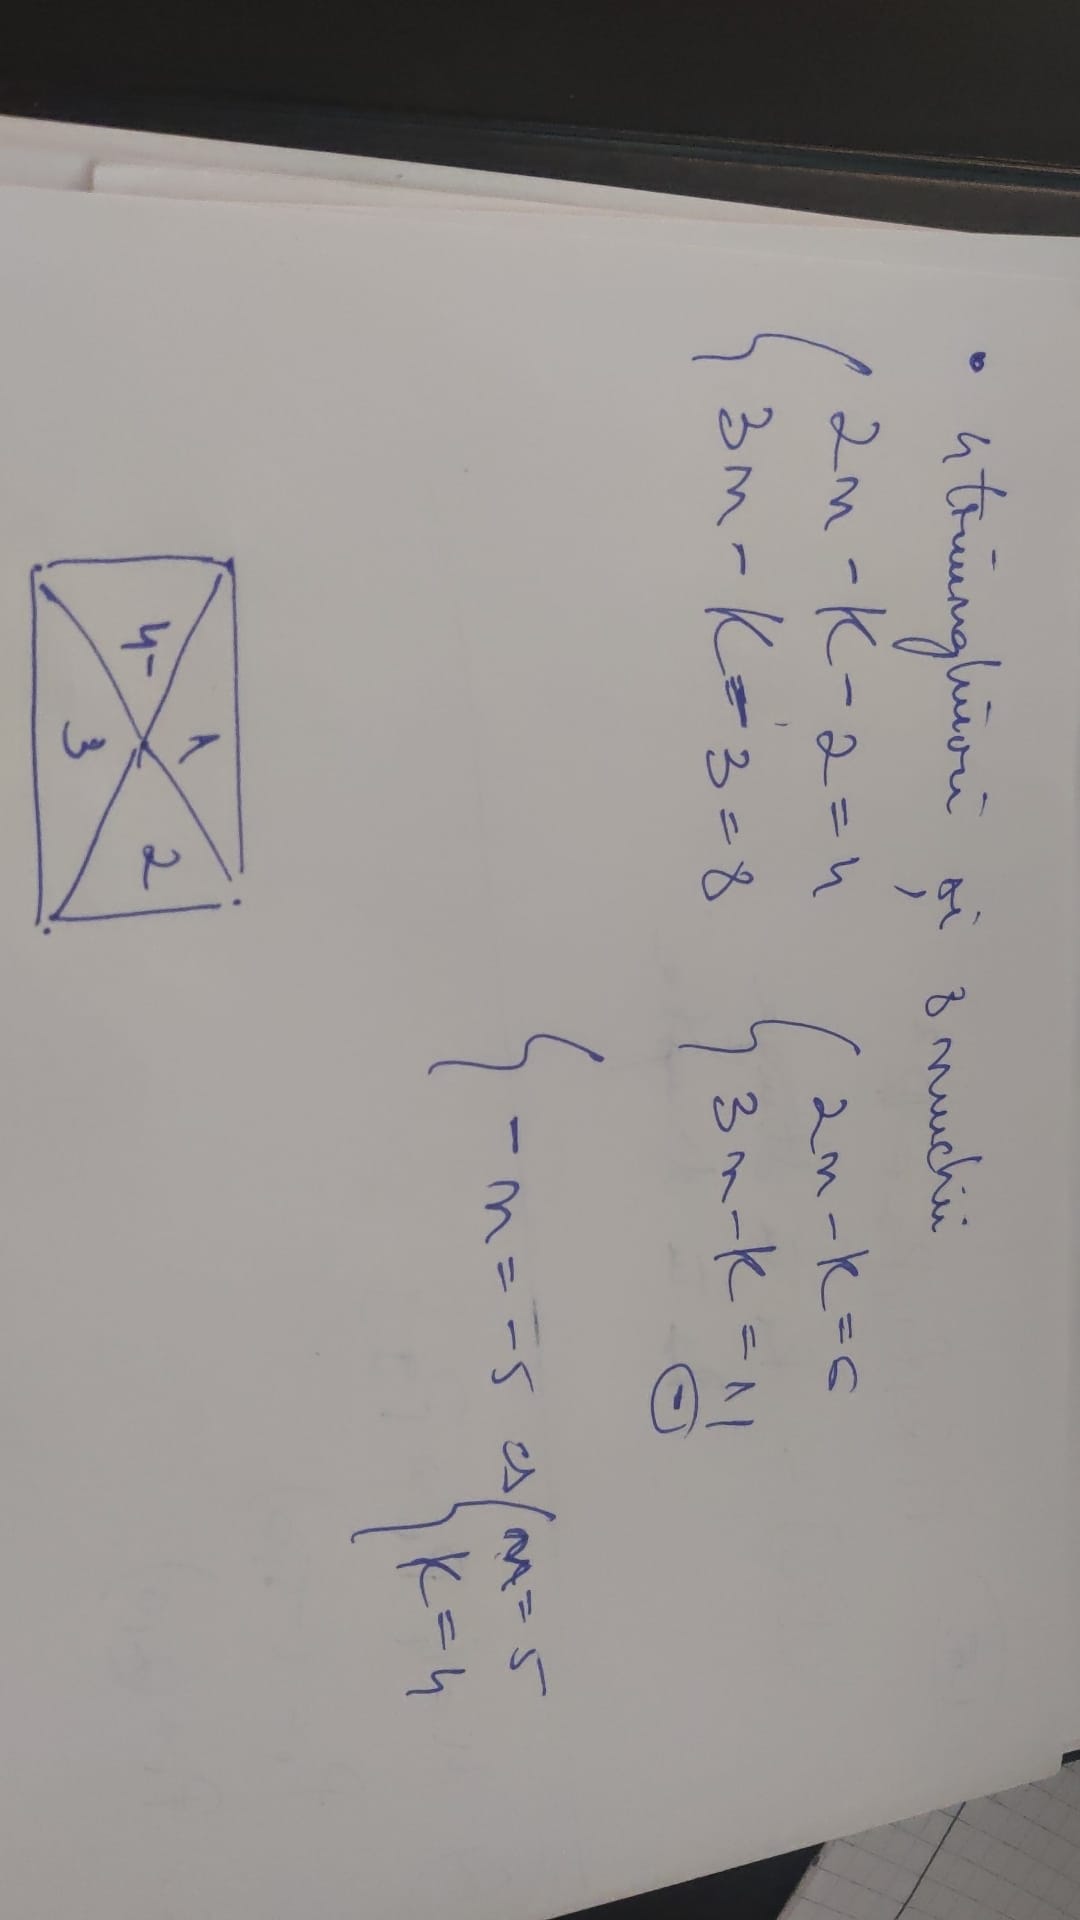 • 4 triunghiuri și 8 muchii
2n - K - 2 = 4
3n - K - 3 = 8
2n - K = 6
3n - K = 11
-
- n = -5 ⇔ n = 5
K = 4
1
4 2
3